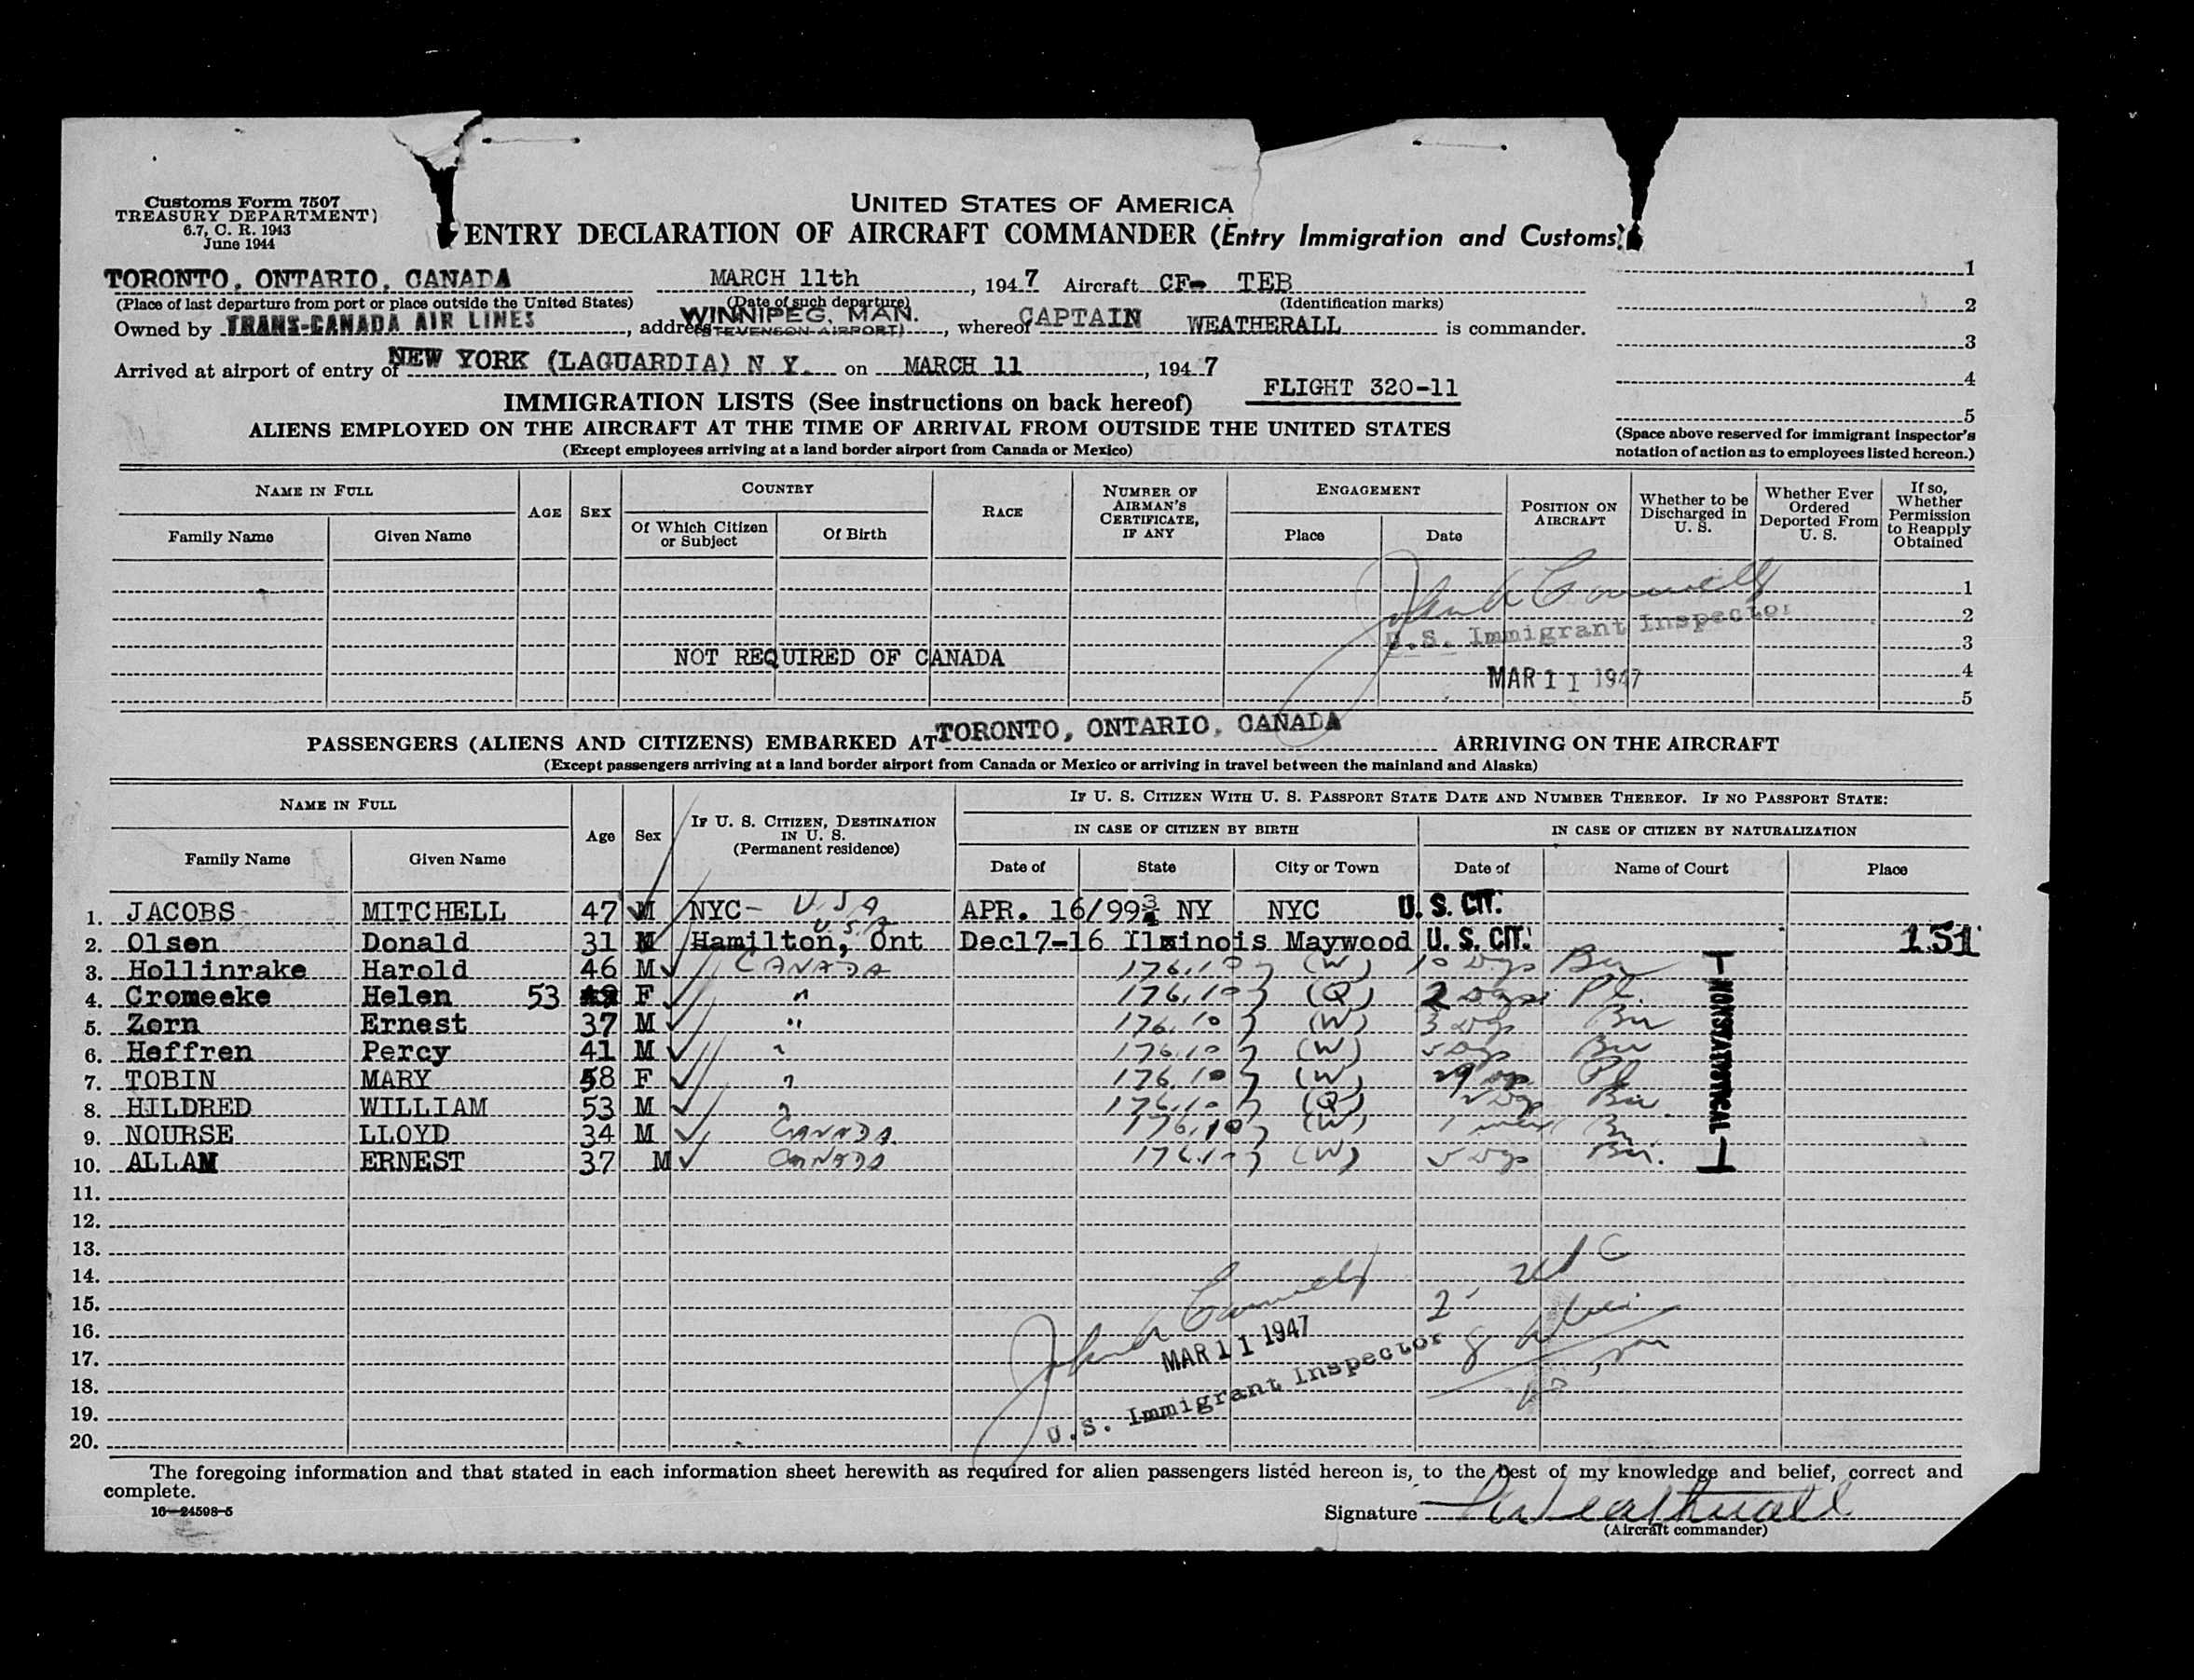 Customs Form 7507
TREASURY DEPARTMENT)
6.7, C. R. 1943
June 1944
UNITED STATES OF AMERICA
ENTRY DECLARATION OF AIRCRAFT COMMANDER (Entry Immigration and Customs)
TORONTO, ONTARIO, CANADA MARCH 11th, 1947 Aircraft CF- TEB
(Place of last departure from port or place outside the United States) (Date of such departure) (Identification marks)
Owned by TRANS-CANADA AIR LINES, address WINNIPEG, MAN. (STEVENSON AIRPORT), whereof CAPTAIN WEATHERALL is commander.
Arrived at airport of entry of NEW YORK (LAGUARDIA) N Y. on MARCH 11, 1947
FLIGHT 320-11
1
2
3
4
5
(Space above reserved for immigrant inspector's
notation of action as to employees listed hereon.)
IMMIGRATION LISTS (See instructions on back hereof)
ALIENS EMPLOYED ON THE AIRCRAFT AT THE TIME OF ARRIVAL FROM OUTSIDE THE UNITED STATES
(Except employees arriving at a land border airport from Canada or Mexico)
NAME IN FULL
Family Name Given Name
AGE
SEX
COUNTRY
Of Which Citizen or Subject
Of Birth
RACE
NUMBER OF AIRMAN'S CERTIFICATE, IF ANY
ENGAGEMENT
Place Date
POSITION ON AIRCRAFT
Whether to be Discharged in U. S.
Whether Ever Ordered Deported From U. S.
If so, Whether Permission to Reapply Obtained
1
2
U.S. Immigrant Inspector
3
NOT REQUIRED OF CANADA
4
MAR 11 1947
5
PASSENGERS (ALIENS AND CITIZENS) EMBARKED AT TORONTO, ONTARIO, CANADA ARRIVING ON THE AIRCRAFT
(Except passengers arriving at a land border airport from Canada or Mexico or arriving in travel between the mainland and Alaska)
NAME IN FULL
Family Name Given Name
Age
Sex
IF U. S. CITIZEN, DESTINATION IN U. S. (Permanent residence)
IF U. S. CITIZEN WITH U. S. PASSPORT STATE DATE AND NUMBER THEREOF. IF NO PASSPORT STATE:
IN CASE OF CITIZEN BY BIRTH
IN CASE OF CITIZEN BY NATURALIZATION
Date of State City or Town Date of Name of Court Place
1. JACOBS MITCHELL 47 M NYC- U.S.A APR. 16/99 NY NYC U. S. CIT.
2. Olsen Donald 31 M Hamilton, Ont U.S.A Dec17-16 Illinois Maywood U. S. CIT. 151
3. Hollinrake Harold 46 M CANADA 176.107 (W) 10 Dys Bu
4. Cromeeke Helen 53 F " 176.107 (Q) 2 Dys Pl.
5. Zorn Ernest 37 M " 176.107 (W) 3 Dys Bu
6. Heffren Percy 41 M " 176.107 (W) 5 Dys Bu
7. TOBIN MARY 58 F " 176.107 (W) 29 Dys Pl
8. HILDRED WILLIAM 53 M " 176.107 (Q) 2 Dys Bu.
9. NOURSE LLOYD 34 M CANADA 176.107 (W) Bu
10. ALLAM ERNEST 37 M CANADA 176.107 (W) 5 Dys Bu.
NONSTATISTICAL
11.
12.
13.
14.
15.
16.
17.
18.
19.
20.
MAR 11 1947
U.S. Immigrant Inspector
The foregoing information and that stated in each information sheet herewith as required for alien passengers listed hereon is, to the best of my knowledge and belief, correct and
complete.
16—24598-5
Signature Weatherall
(Aircraft commander)